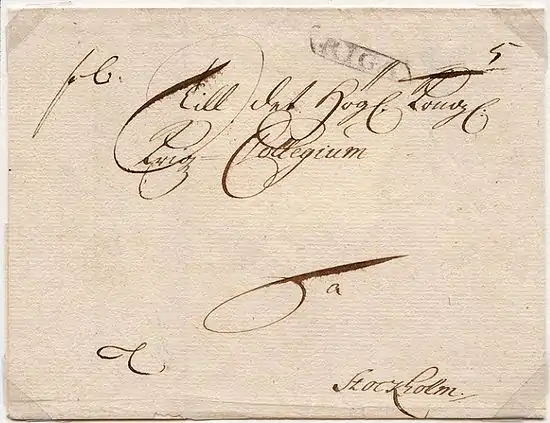 RIGA
5
f. b.
Till det Högl. Kongl.
Krigz Collegium
a
Stockholm.